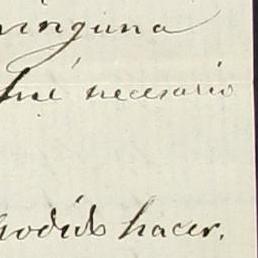 ninguna
fué necesario
podido hacer.